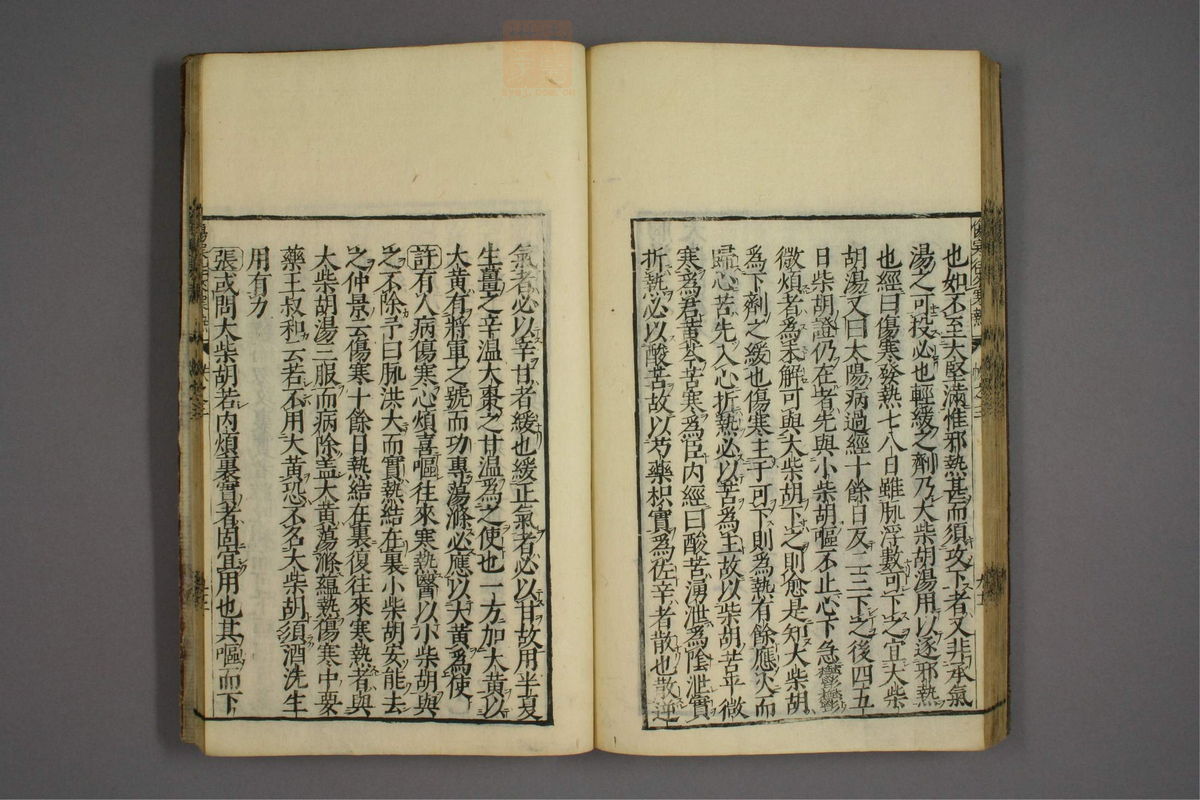 也如不至大堅滿惟邪熱甚而須攻下者又非承氣
湯之可投必也輕緩之劑乃大柴胡湯用以逐邪熱
也經曰傷寒發熱七八日雖脉浮數可下之宜大柴
胡湯又曰太陽病過經十餘日反二三下之後四五
日柴胡證仍在者先與小柴胡嘔不止心下急鬱鬱
微煩者為未解可與大柴胡下之則愈是知大柴胡
為下劑之緩也傷寒主于可下則為熱有餘應火而
歸心苦先入心折熱必以苦為主故以柴胡苦平微
寒為君黃芩苦寒為臣內經曰酸苦湧泄為陰泄實
折熱必以酸苦故以芍藥枳實為佐辛者散也散逆
氣者必以辛甘者緩也緩正氣者必以甘故用半夏
生薑之辛溫大棗之甘溫為之使也一方加大黃以
大黃有將軍之號而功專蕩滌必應以大黃為使
許有人病傷寒心煩喜嘔往來寒熱醫以小柴胡與
之不除予曰脉洪大而實熱結在裏小柴胡安能去
之仲景云傷寒十餘日熱結在裏復往來寒熱者與
大柴胡湯三服而病除盖大黃蕩滌蘊熱傷寒中要
藥王叔和云若不用大黃恐不名大柴胡須酒洗生
用有力
張或問大柴胡若內煩裏實者固宜用也其嘔而下